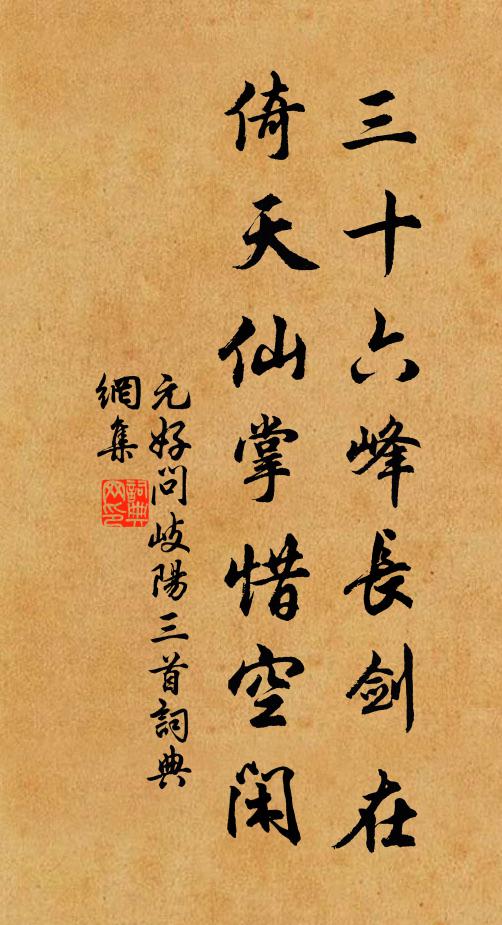 三十六峰長劍在
倚天仙掌惜空閑
元好問岐陽三首詞典
網集
詞典網印